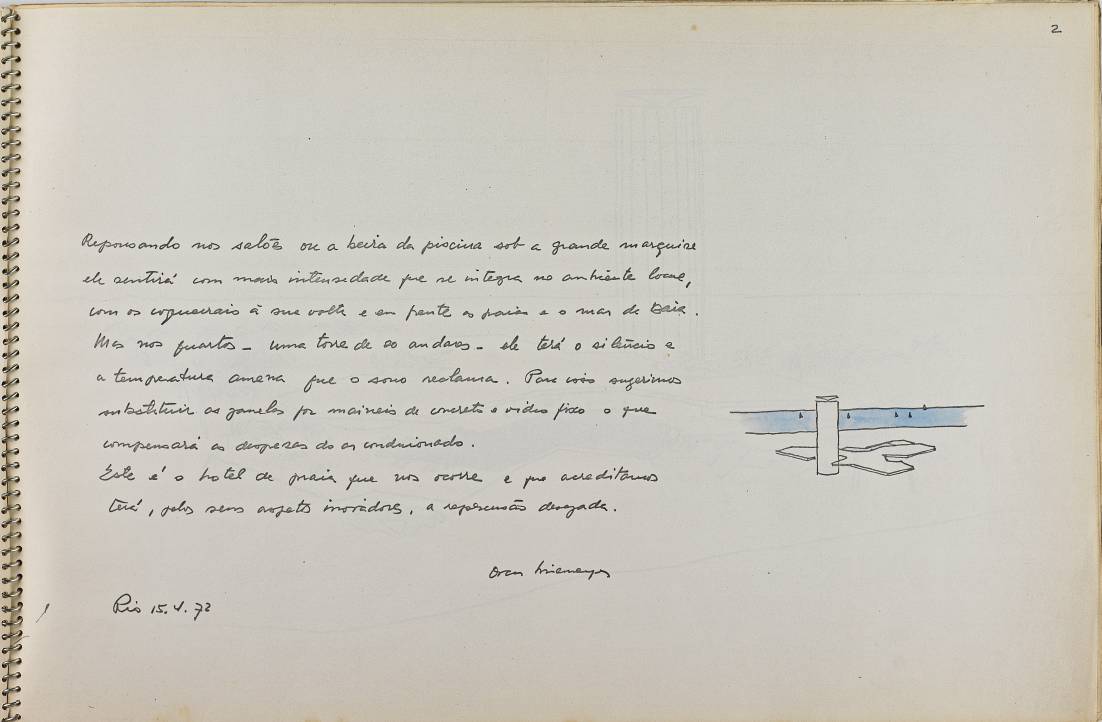 2
Repousando nos salões ou a beira da piscina sob a grande marquise
ele sentirá com mais intensidade que se integra no ambiente local,
com os coqueirais à sua volta e em frente as praias e o mar da Baia.
Mas nos quartos - uma torre de 20 andares - ele terá o silêncio e
a temperatura amena que o sono reclama. Para isso sugerimos
substituir as janelas por maineis de concreto e vidro fixo o que
compensará as despezas do ar condicionado.
Este é o hotel de praia que nos ocorre e que acreditamos
terá, pelos seus aspetos inovadores, a repercussão desejada.
Oscar Niemeyer
Rio 15.4.72